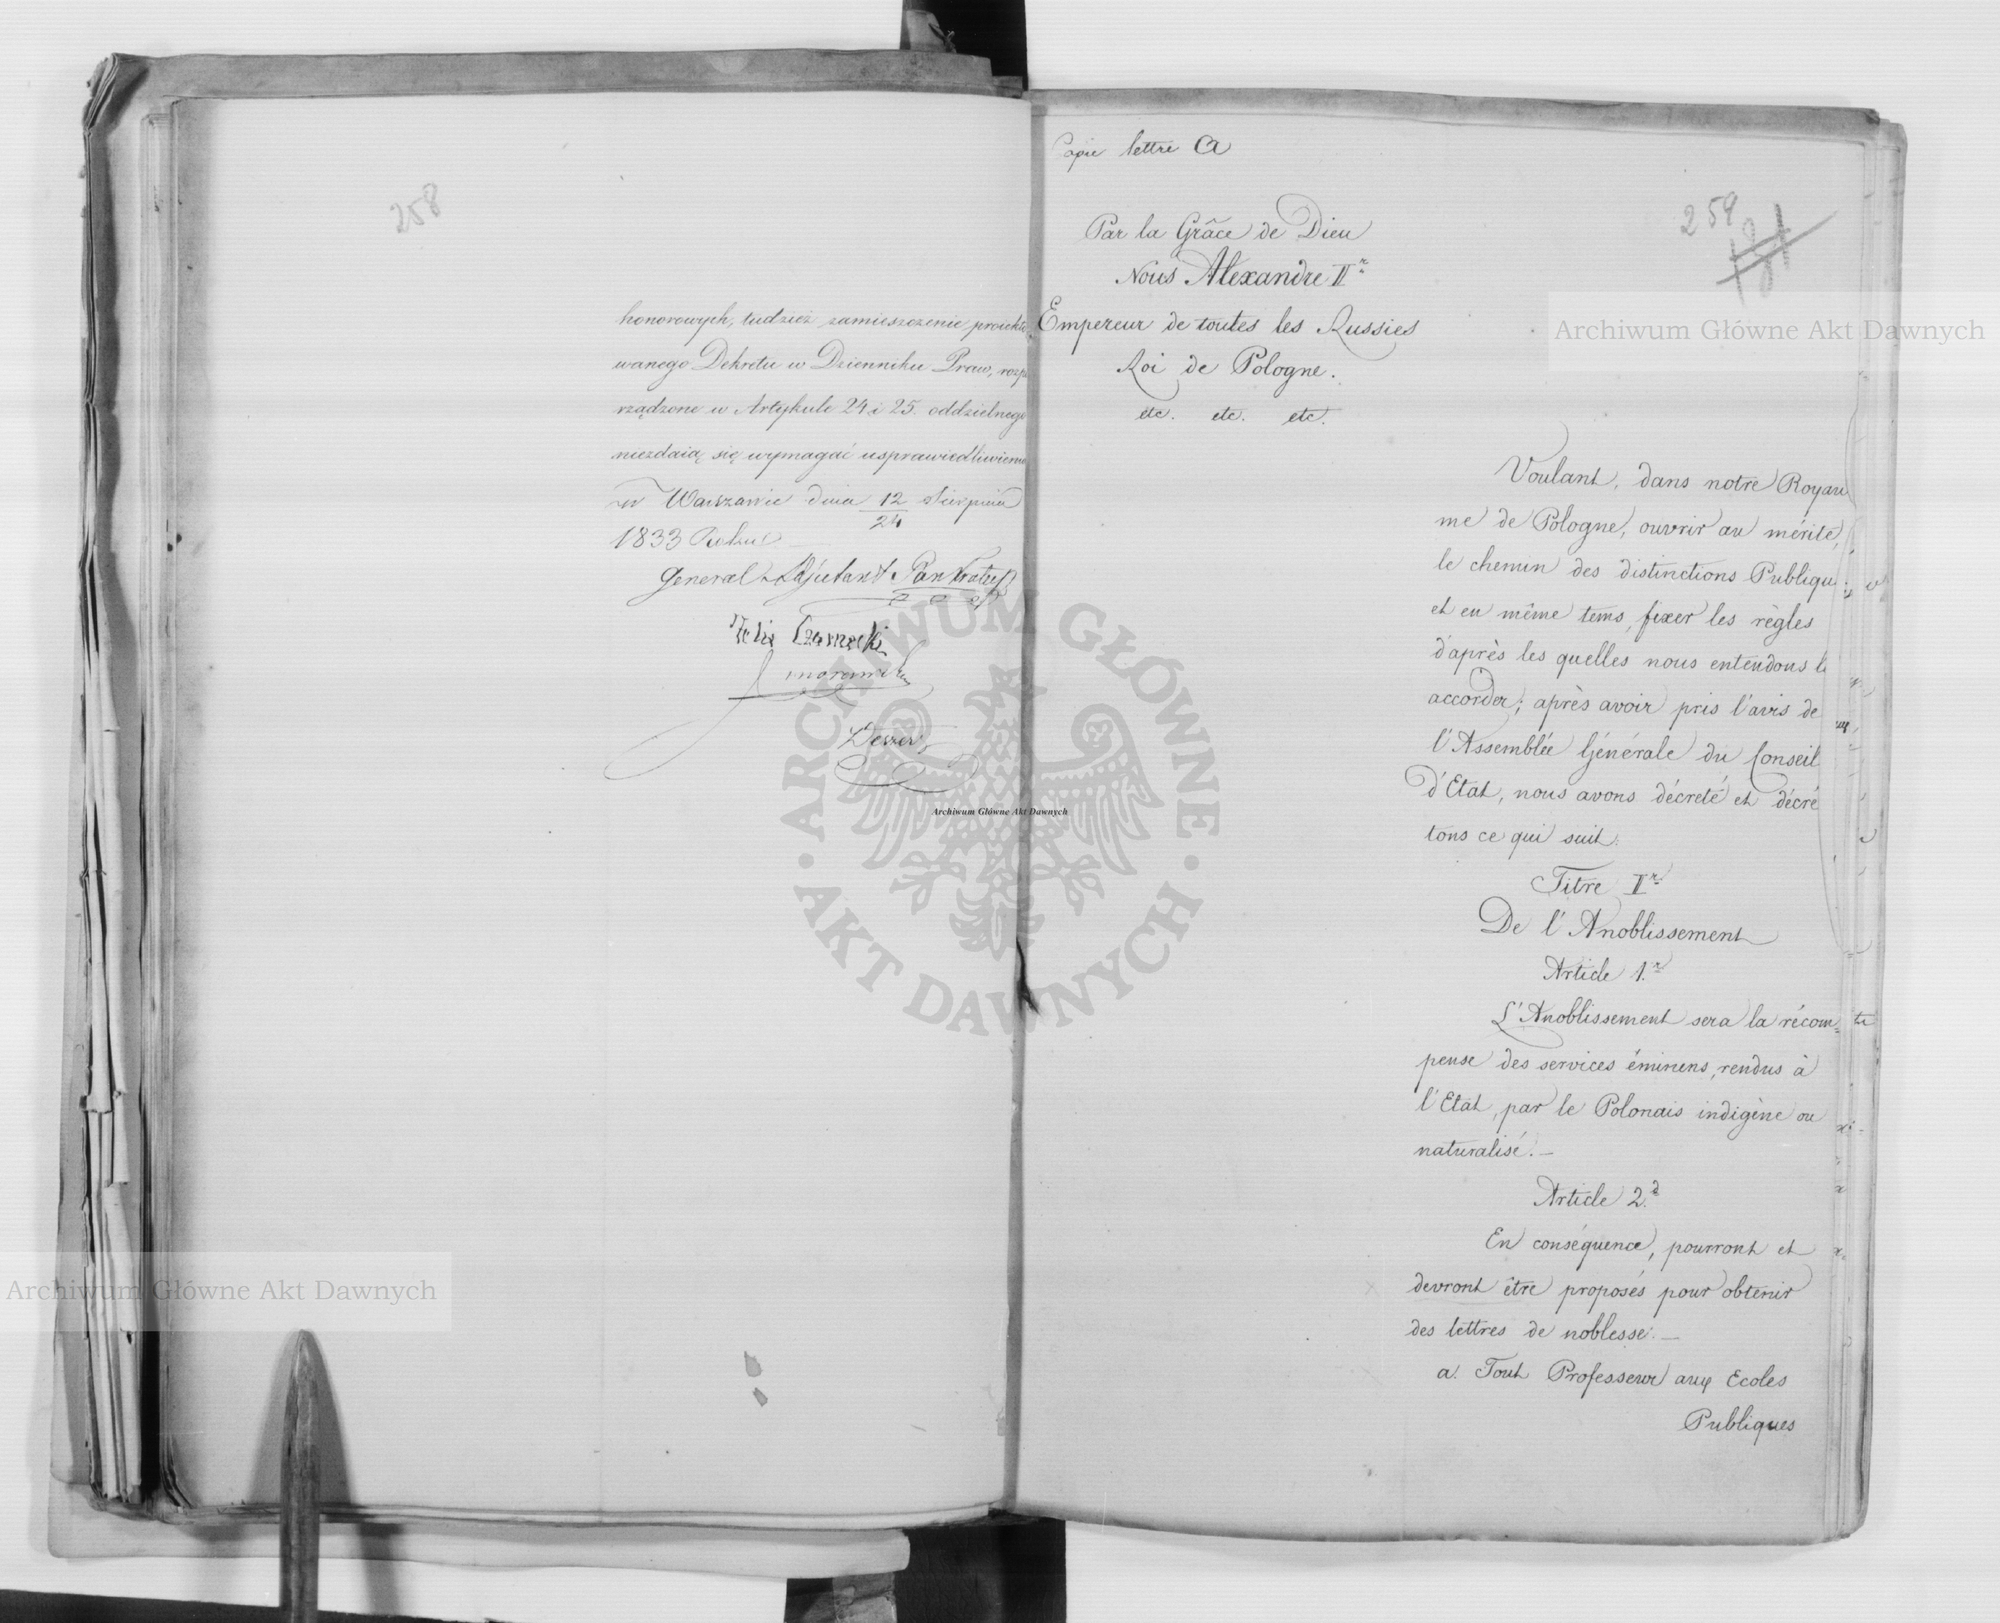 258
honorowych, tudzież zamieszczenie proiekto
wanego Dekretu w Dzienniku Praw, rozpo
rządzone w Artykule 24 i 25. oddzielnego
niezdaią się wymagać usprawiedliwienia
w Warszawie dnia 12/24 Sierpnia
1833 Roku
General Adjutant
Copie lettre A
259
Par la Grâce de Dieu
Nous Alexandre Ir
Empereur de toutes les Russies
Roi de Pologne.
etc. etc. etc.
Voulant, dans notre Royau
me de Pologne, ouvrir au mérite,
le chemin des distinctions Publiqu
et en même tems, fixer les règles
d'après les quelles nous entendons l
accorder; après avoir pris l'avis de
l'Assemblée Générale du Conseil
d'Etat, nous avons décreté et décré
tons ce qui suit:
Titre Ir
De l'Anoblissement
Article 1.r
L'Anoblissement sera la récom=
pense des services éminens, rendus à
l'Etat, par le Polonais indigène ou
naturalisé.—
Article 2.d
En conséquence, pourront et
devront être proposés pour obtenir
des lettres de noblesse:—
a. Tout Professeur aux Ecoles
Publiques
Archiwum Główne Akt Dawnych
Archiwum Główne Akt Dawnych
Archiwum Główne Akt Dawnych
ARCHIWUM GŁÓWNE
AKT DAWNYCH